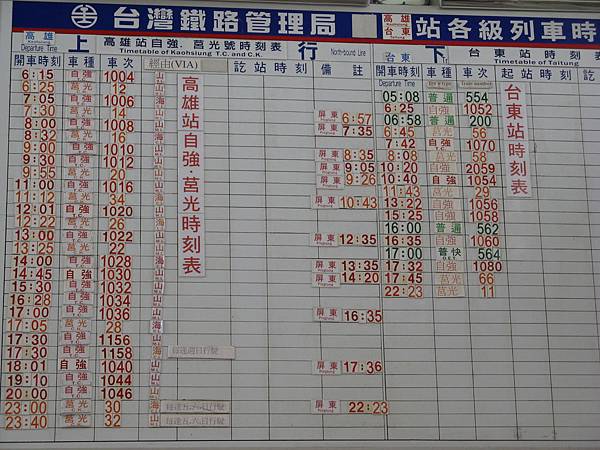 台灣鐵路管理局
高雄
台東
站各級列車時
高雄
Departure Time
上
高雄站自強.莒光號時刻表
Timetable of Kaohsiung T.C. and C.K.
行
North-bound Line
台東
下
台東站時刻表
Timetable of Taitung
開車時刻 車種 車次 經由(VIA) 訖站時刻 備註
開車時刻 車種 車次 起站時刻 訖站時刻
Departure Time
高雄站自強·莒光時刻表
台東站時刻表
6:15 自強 1004 山
6:25 莒光 12 山
7:05 自強 1006 山
7:30 莒光 14
8:00 自強 1008 山
8:32 莒光 16
9:00 自強 1010
9:30 自強 1012
9:55 莒光 20
11:00 自強 1016
11:12 莒光 34
12:01 自強 1020
12:22 莒光 26
13:00 自強 1022
13:25 莒光 22
14:00 自強 1028
14:45 自強 1030
15:30 自強 1032
16:28 自強 1034
17:00 自強 1036
17:05 莒光 28 海
17:30 自強 1156 山
17:30 自強 1158 海
18:01 自強 1040 山
19:10 自強 1044 山
20:00 自強 1046 山
23:00 莒光 30 海
23:40 莒光 32 山
屏東 6:57
屏東 7:35
屏東 8:35
屏東 9:05
屏東 9:26
屏東 10:43
屏東 12:35
屏東 13:35
屏東 14:20
屏東 16:35
屏東 17:36
屏東 22:23
05:08 普通 554
6:25 自強 1052
06:58 普通 200
6:45 莒光 56
7:42 自強 1070
8:08 莒光 58
10:20 自強 2059
10:40 自強 1054
11:43 莒光 29
13:22 自強 1056
15:25 自強 1058
16:00 普通 562
16:35 自強 1060
17:00 普快 564
17:32 自強 1080
17:45 莒光 66
22:23 莒光 11